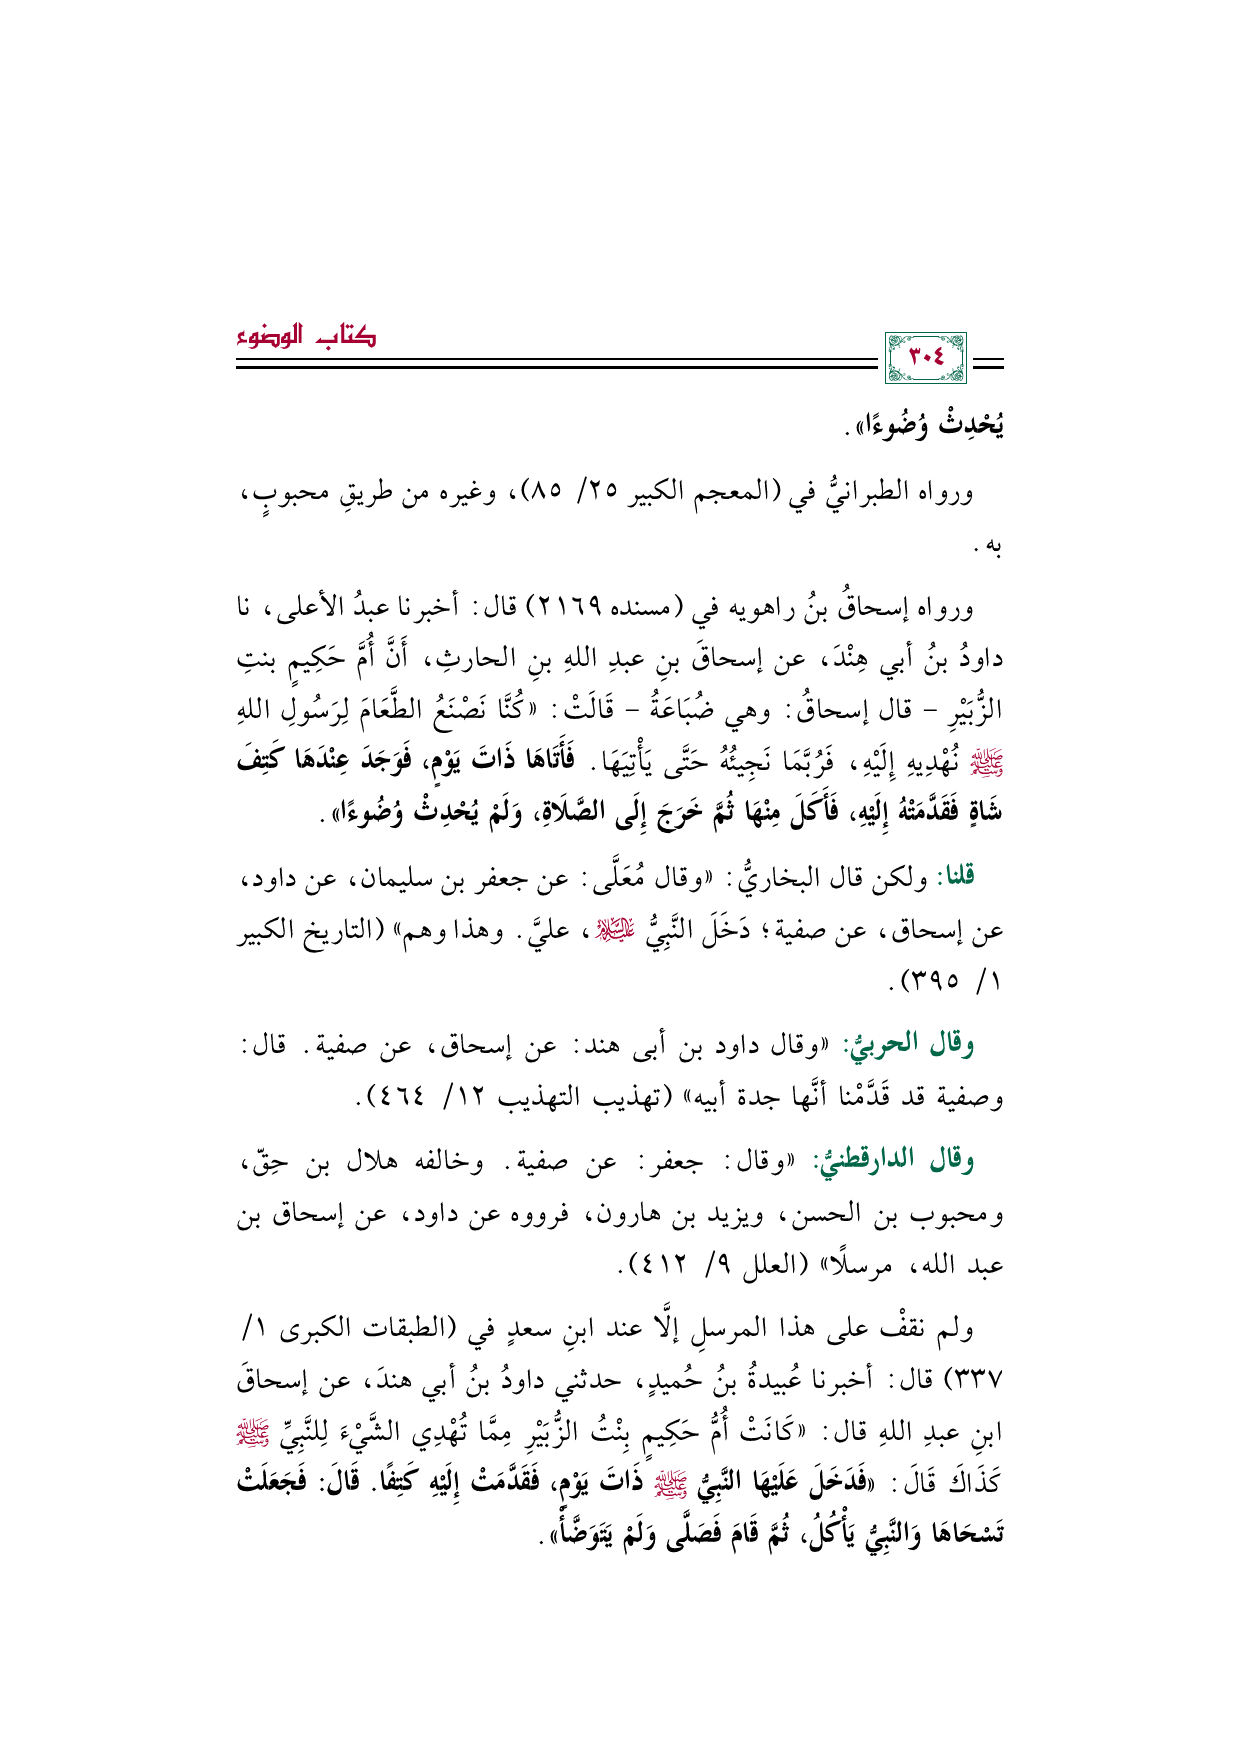 كتاب الوضوء
٣٠٤
يُحْدِثْ وُضُوءًا».
ورواه الطبرانيُّ في (المعجم الكبير ٢٥/ ٨٥)، وغيره من طريقِ محبوبٍ،
به.
ورواه إسحاقُ بنُ راهويه في (مسنده ٢١٦٩) قال: أخبرنا عبدُ الأعلى، نا
داودُ بنُ أبي هِنْدَ، عن إسحاقَ بنِ عبدِ اللهِ بنِ الحارثِ، أَنَّ أُمَّ حَكِيمٍ بنتِ
الزُّبَيْرِ – قال إسحاقُ: وهي ضُبَاعَةُ – قَالَتْ: «كُنَّا نَصْنَعُ الطَّعَامَ لِرَسُولِ اللهِ
ﷺ نُهْدِيهِ إِلَيْهِ، فَرُبَّمَا نَجِيئُهُ حَتَّى يَأْتِيَهَا. فَأَتَاهَا ذَاتَ يَوْمٍ، فَوَجَدَ عِنْدَهَا كَتِفَ
شَاةٍ فَقَدَّمَتْهُ إِلَيْهِ، فَأَكَلَ مِنْهَا ثُمَّ خَرَجَ إِلَى الصَّلَاةِ، وَلَمْ يُحْدِثْ وُضُوءًا».
قلنا: ولكن قال البخاريُّ: «وقال مُعَلَّى: عن جعفر بن سليمان، عن داود،
عن إسحاق، عن صفية؛ دَخَلَ النَّبِيُّ عليه السلام، عليَّ. وهذا وهم» (التاريخ الكبير
١/ ٣٩٥).
وقال الحربيُّ: «وقال داود بن أبى هند: عن إسحاق، عن صفية. قال:
وصفية قد قَدَّمْنا أنَّها جدة أبيه» (تهذيب التهذيب ١٢/ ٤٦٤).
وقال الدارقطنيُّ: «وقال: جعفر: عن صفية. وخالفه هلال بن حِقّ،
ومحبوب بن الحسن، ويزيد بن هارون، فرووه عن داود، عن إسحاق بن
عبد الله، مرسلًا» (العلل ٩/ ٤١٢).
ولم نقفْ على هذا المرسلِ إلَّا عند ابنِ سعدٍ في (الطبقات الكبرى ١/
٣٣٧) قال: أخبرنا عُبيدةُ بنُ حُميدٍ، حدثني داودُ بنُ أبي هندَ، عن إسحاقَ
ابنِ عبدِ اللهِ قال: «كَانَتْ أُمُّ حَكِيمٍ بِنْتُ الزُّبَيْرِ مِمَّا تُهْدِي الشَّيْءَ لِلنَّبِيِّ ﷺ
كَذَاكَ قَالَ: «فَدَخَلَ عَلَيْهَا النَّبِيُّ ﷺ ذَاتَ يَوْمٍ، فَقَدَّمَتْ إِلَيْهِ كَتِفًا. قَالَ: فَجَعَلَتْ
تَسْحَاهَا وَالنَّبِيُّ يَأْكُلُ، ثُمَّ قَامَ فَصَلَّى وَلَمْ يَتَوَضَّأْ».